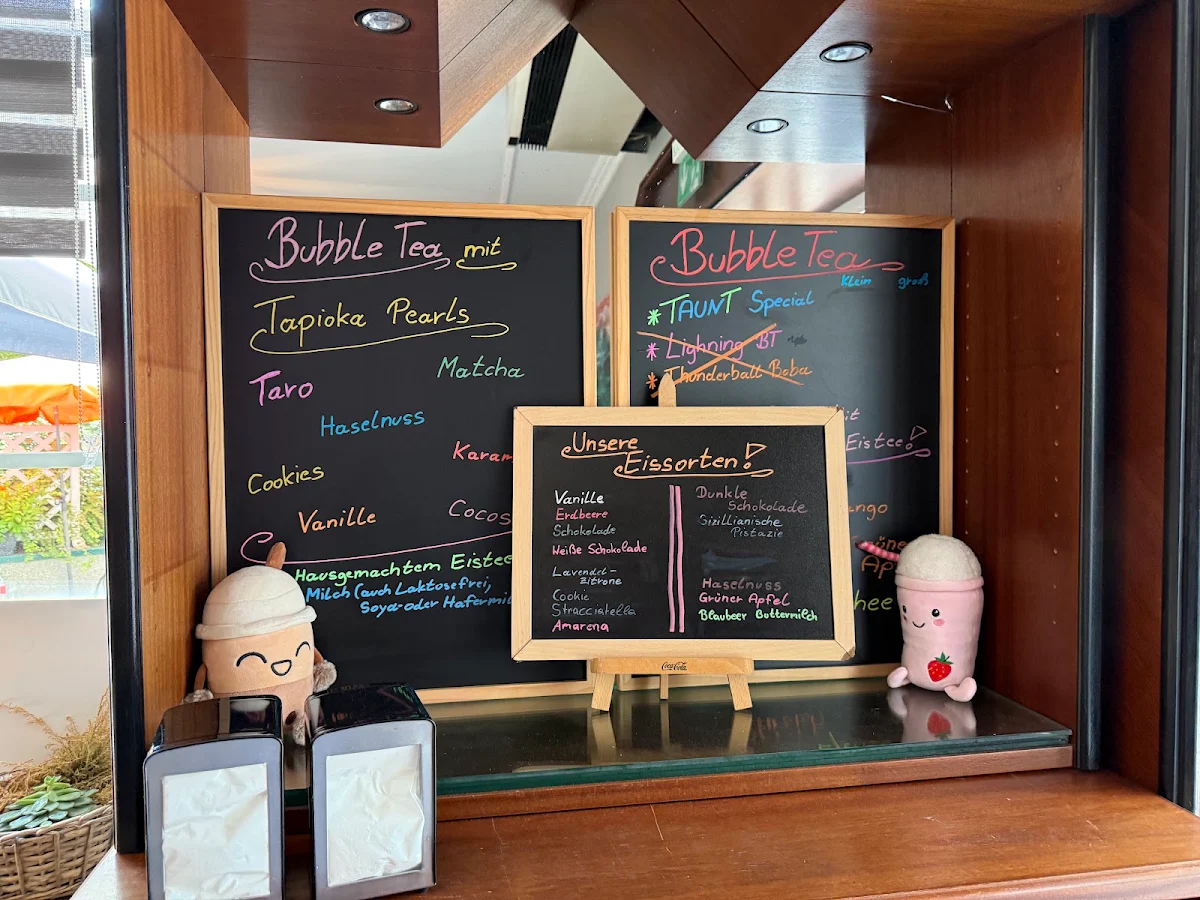 Bubble Tea mit
Tapioka Pearls
Taro
Matcha
Haselnuss
Karam
Cookies
Vanille
Cocos
Hausgemachtem Eistee
Milch (auch Laktosefrei,
Soya- oder Hafermil
Bubble Tea
Klein groß
* TAUNT Special
* Lighning BT
* Thunderball Boba
it
Eistee!
ango
Ap
hee
Unsere
Eissorten!
Vanille
Erdbeere
Schokolade
Weiße Schokolade
Lavendel-
zitrone
Cookie
Stracciatella
Amarena
Dunkle
Schokolade
Sizillianische
Pistazie
Haselnuss
Grüner Apfel
Blaubeer Buttermilch
Coca-Cola